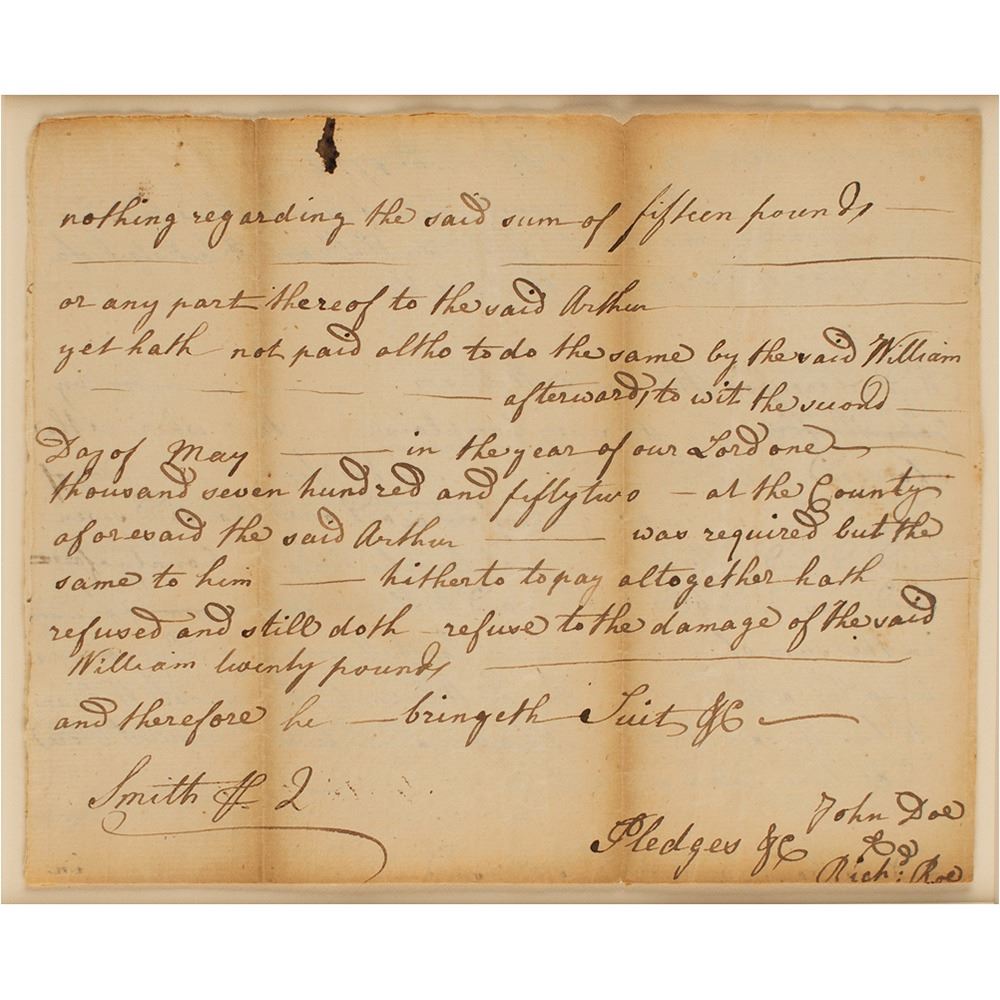 nothing regarding the said sum of fifteen pounds
or any part thereof to the said Arthur
yet hath not paid altho to do the same by the said William
afterward, to wit the second
Day of May in the year of our Lord one
thousand seven hundred and fifty two at the County
aforesaid the said Arthur was required but the
same to him hitherto to pay altogether hath
refused and still doth refuse to the damage of the said
William twenty pounds
and therefore he bringeth Suit &C
Smith Q
Pledges &C
John Doe
&
Richd: Roe